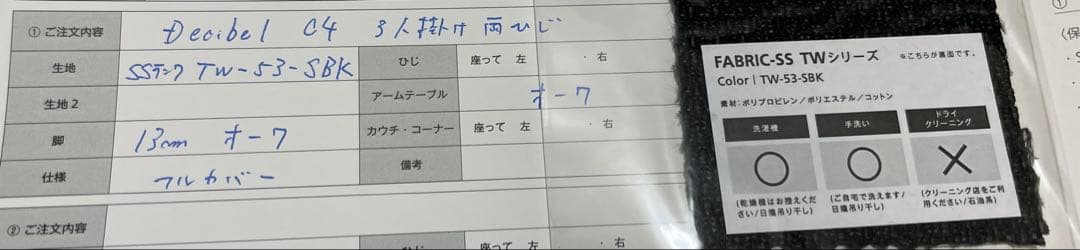 ① ご注文内容 Decibel C4 3人掛け 両ひじ
生地 SSランク TW-53-SBK ひじ 座って 左 ・ 右
生地2 アームテーブル オーク
脚 13cm オーク カウチ・コーナー 座って 左 ・ 右
仕様 フルカバー 備考
② ご注文内容
ひじ 座って 左 ・ 右
FABRIC-SS TWシリーズ ※こちらが裏面です。
Color | TW-53-SBK
素材：ポリプロピレン/ポリエステル/コットン
洗濯機 手洗い ドライクリーニング
○ ○ ×
(乾燥機はお控えください/日陰吊り干し) (ご自宅で洗えます/日陰吊り干し) (クリーニング店をご利用ください/石油系)
①
〈保